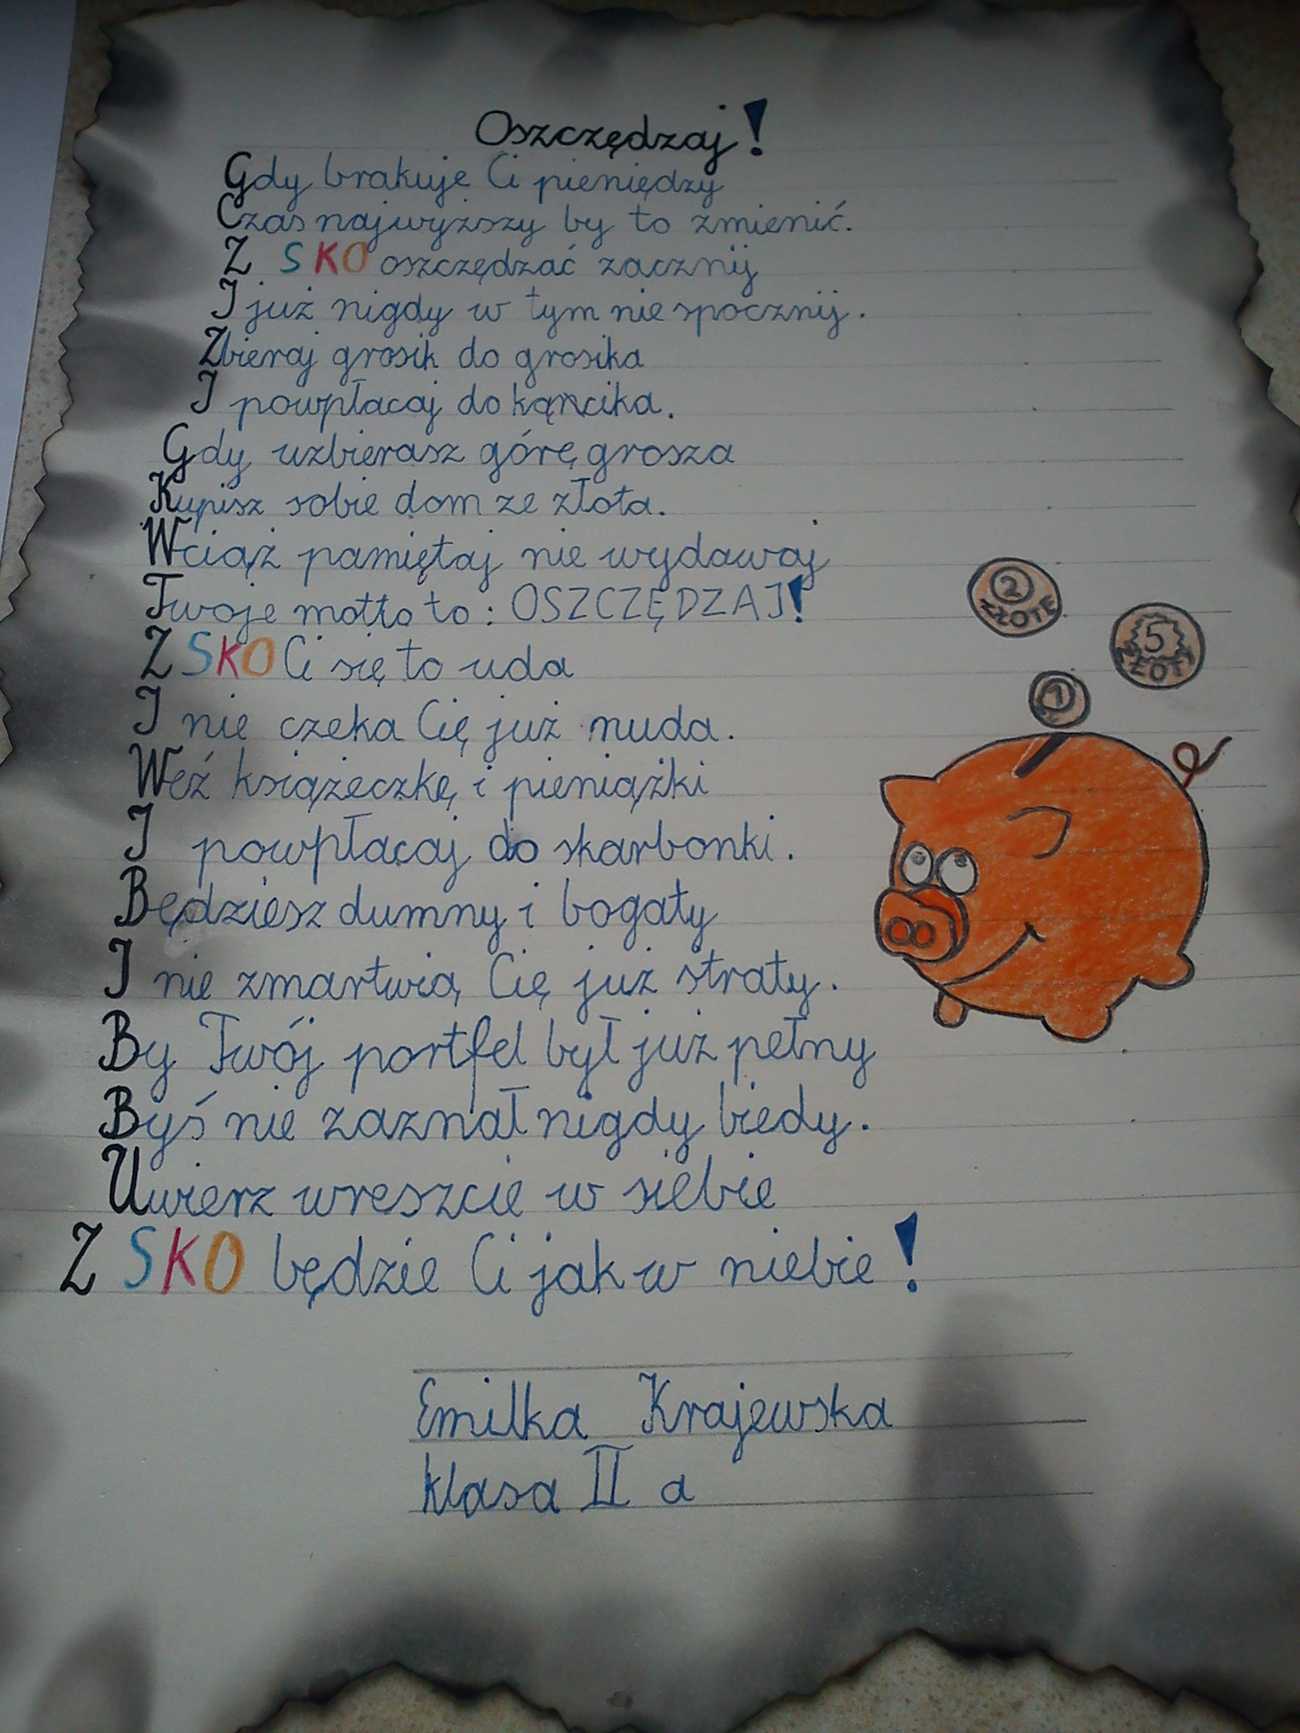 Oszczędzaj!
Gdy brakuje Ci pieniędzy
Czas najwyższy by to zmienić.
Z SKO oszczędzać zacznij
I już nigdy w tym nie spocznij.
Zbieraj grosik do grosika
I powpłacaj do kącika.
Gdy uzbierasz górę grosza
Kupisz sobie dom ze złota.
Wciąż pamiętaj nie wydawaj
Twoje motto to: OSZCZĘDZAJ!
Z SKO Ci się to uda
I nie czeka Cię już nuda.
Weź książeczkę i pieniążki
I powpłacaj do skarbonki.
Będziesz dumny i bogaty
I nie zmartwią Cię już straty.
By Twój portfel był już pełny
Byś nie zaznał nigdy biedy.
Uwierz wreszcie w siebie
Z SKO będzie Ci jak w niebie!
2
ZŁOTE
5
ZŁOTY
1
Emilka Krajewska
klasa II a